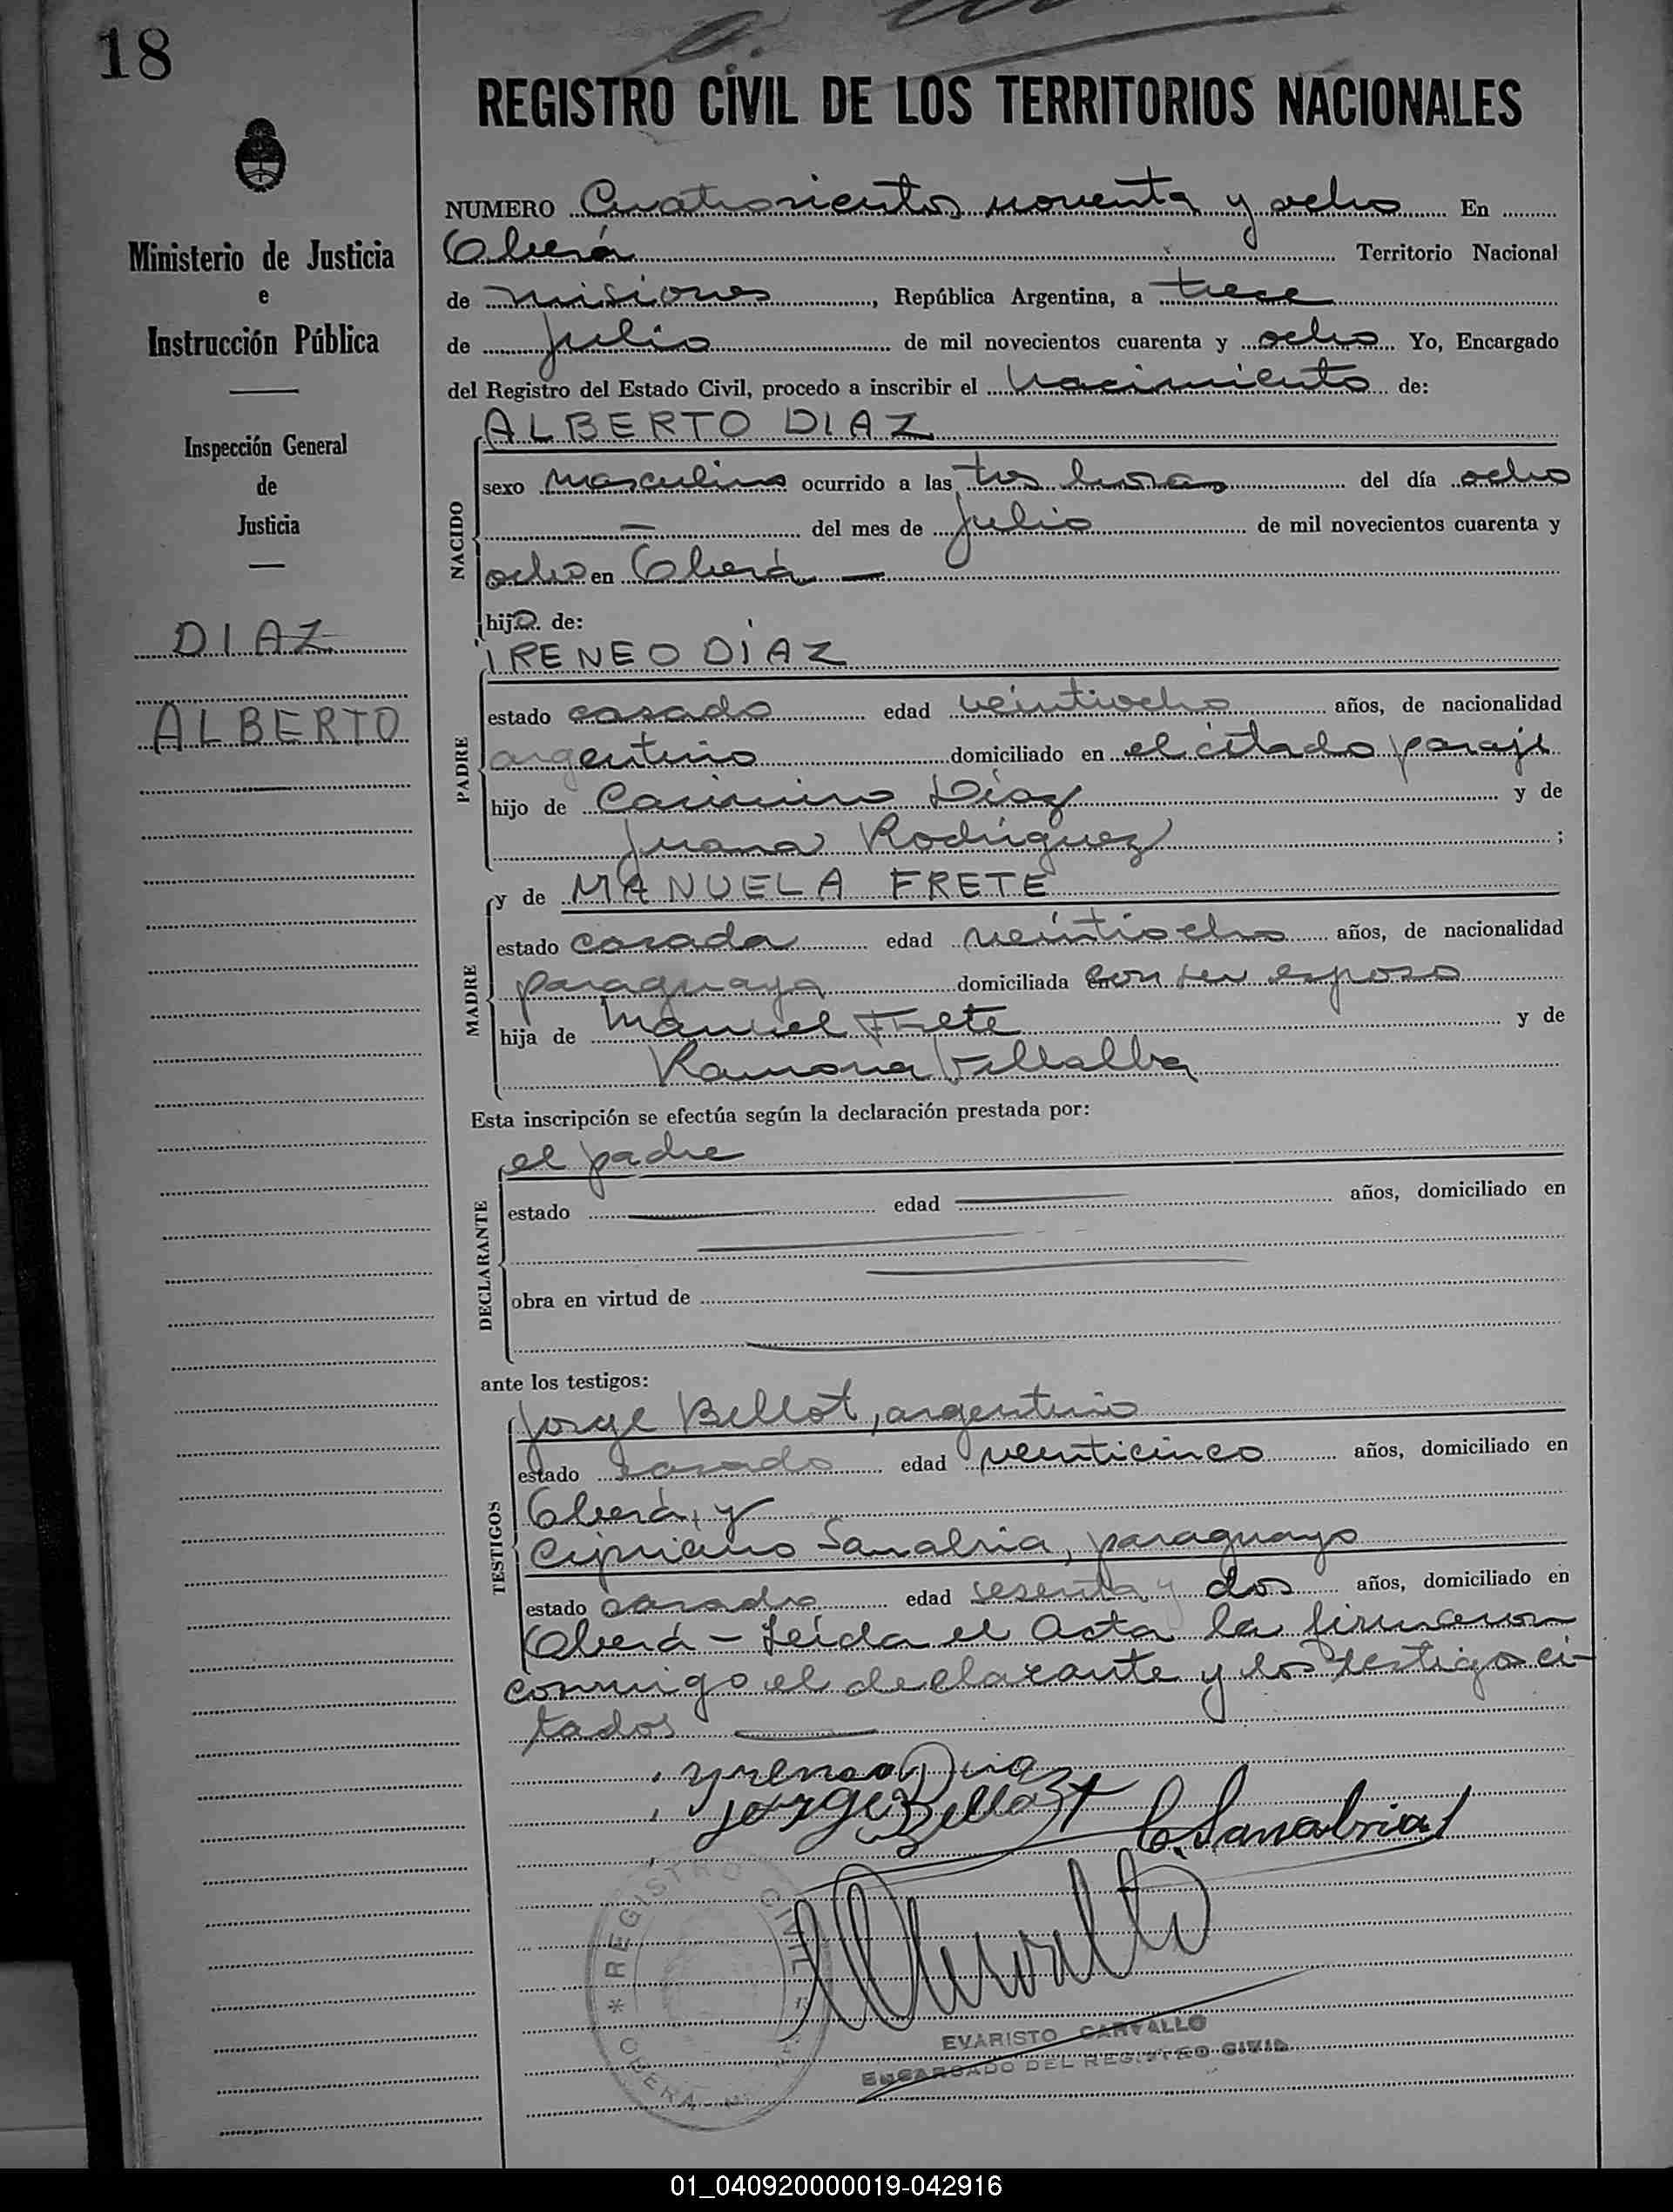 18
REGISTRO CIVIL DE LOS TERRITORIOS NACIONALES
Ministerio de Justicia
e
Instrucción Pública
Inspección General
de
Justicia
DIAZ
ALBERTO
NUMERO Cuatrocientos noventa y ocho En
Oberá Territorio Nacional
de Misiones, República Argentina, a trece
de Julio de mil novecientos cuarenta y ocho Yo, Encargado
del Registro del Estado Civil, procedo a inscribir el Nacimiento de:
NACIDO
ALBERTO DIAZ
sexo masculino ocurrido a las tres horas del día ocho
— del mes de Julio de mil novecientos cuarenta y
ocho en Oberá —
hijo de:
PADRE
IRENEO DÍAZ
estado casado edad veintiocho años, de nacionalidad
argentino domiciliado en el citado paraje
hijo de Casimiro Díaz y de
Juana Rodríguez ;
MADRE
y de MANUELA FRETE
estado casada edad veintiocho años, de nacionalidad
paraguaya domiciliada con su esposo
hija de Manuel Frete y de
Ramona Villalba
Esta inscripción se efectúa según la declaración prestada por:
DECLARANTE
el padre
estado edad años, domiciliado en
obra en virtud de
ante los testigos:
TESTIGOS
Jorge Bellot, argentino
estado casado edad veinticinco años, domiciliado en
Oberá, y
Cipriano Sanabria, paraguayo
estado casado edad sesenta y dos años, domiciliado en
Oberá – Leída el Acta la firmaron
conmigo el declarante y los testigos ci-
tados
Yreneo Diaz
Jorge Bellot C. Sanabria
REGISTRO CIVIL
OBERÁ
EVARISTO CARVALLO
ENCARGADO DEL REGISTRO CIVIL
01_040920000019-042916